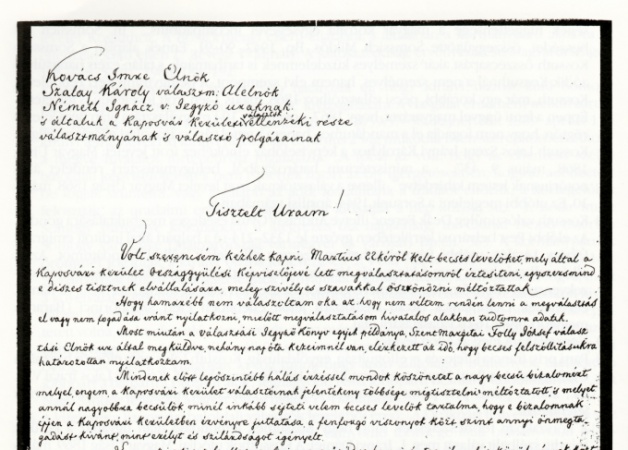 Kovács Imre Elnök
Szalay Károly választm: Alelnök
Németh Ignácz v: Jegyző uraknak
választók
is általuk a Kaposvár kerület ellenzéki része
választmányának is választó polgárainak
Tisztelt Uraim!
Volt szerencsém kézhez kapni Martius 22kéről kelt becses levelöket mely által a
Kaposvári kerület Országgyülési Képviselőjévé lett megválasztatásomról értesíteni, egyszersmind
e díszes tisztnek elvállalására, meleg szivélyes szavakkal ösztönözni méltóztattak
Hogy hamarébb nem válaszoltam oka az, hogy nem véltem rendén lenni a megválasztás
el vagy nem fogadása iránt nyilatkozni, mielőtt megválasztatásom hivatalos alakban tudtomra adatik.
Most miután a választási Jegyző Könyv egyik példánya, Szentmargitai Folly József válasz
tási Elnök ur által megküldve, nehány nap óta kezeimnél van, elérkezett az idő, hogy becses felszóllitásukra
határozottan nyilatkozzam.
Mindenek előtt legőszintébb hálás érzéssel mondok köszönetet a nagy becsü bizalomért
melyel, engem a Kaposvári kerület választóinak jelentékeny többsége megtisztelni méltóztatott, is melyet
annál nagyobbra becsülök, minél inkább sejteti velem becses levelök tartalma, hogy e bizalomnak
éppen a Kaposvári Kerületben érvényre juttatása a fenforgó viszonyok közt szint annyi önmegta-
gadást kivánt, mint erélyt és szilárdságot igényelt.